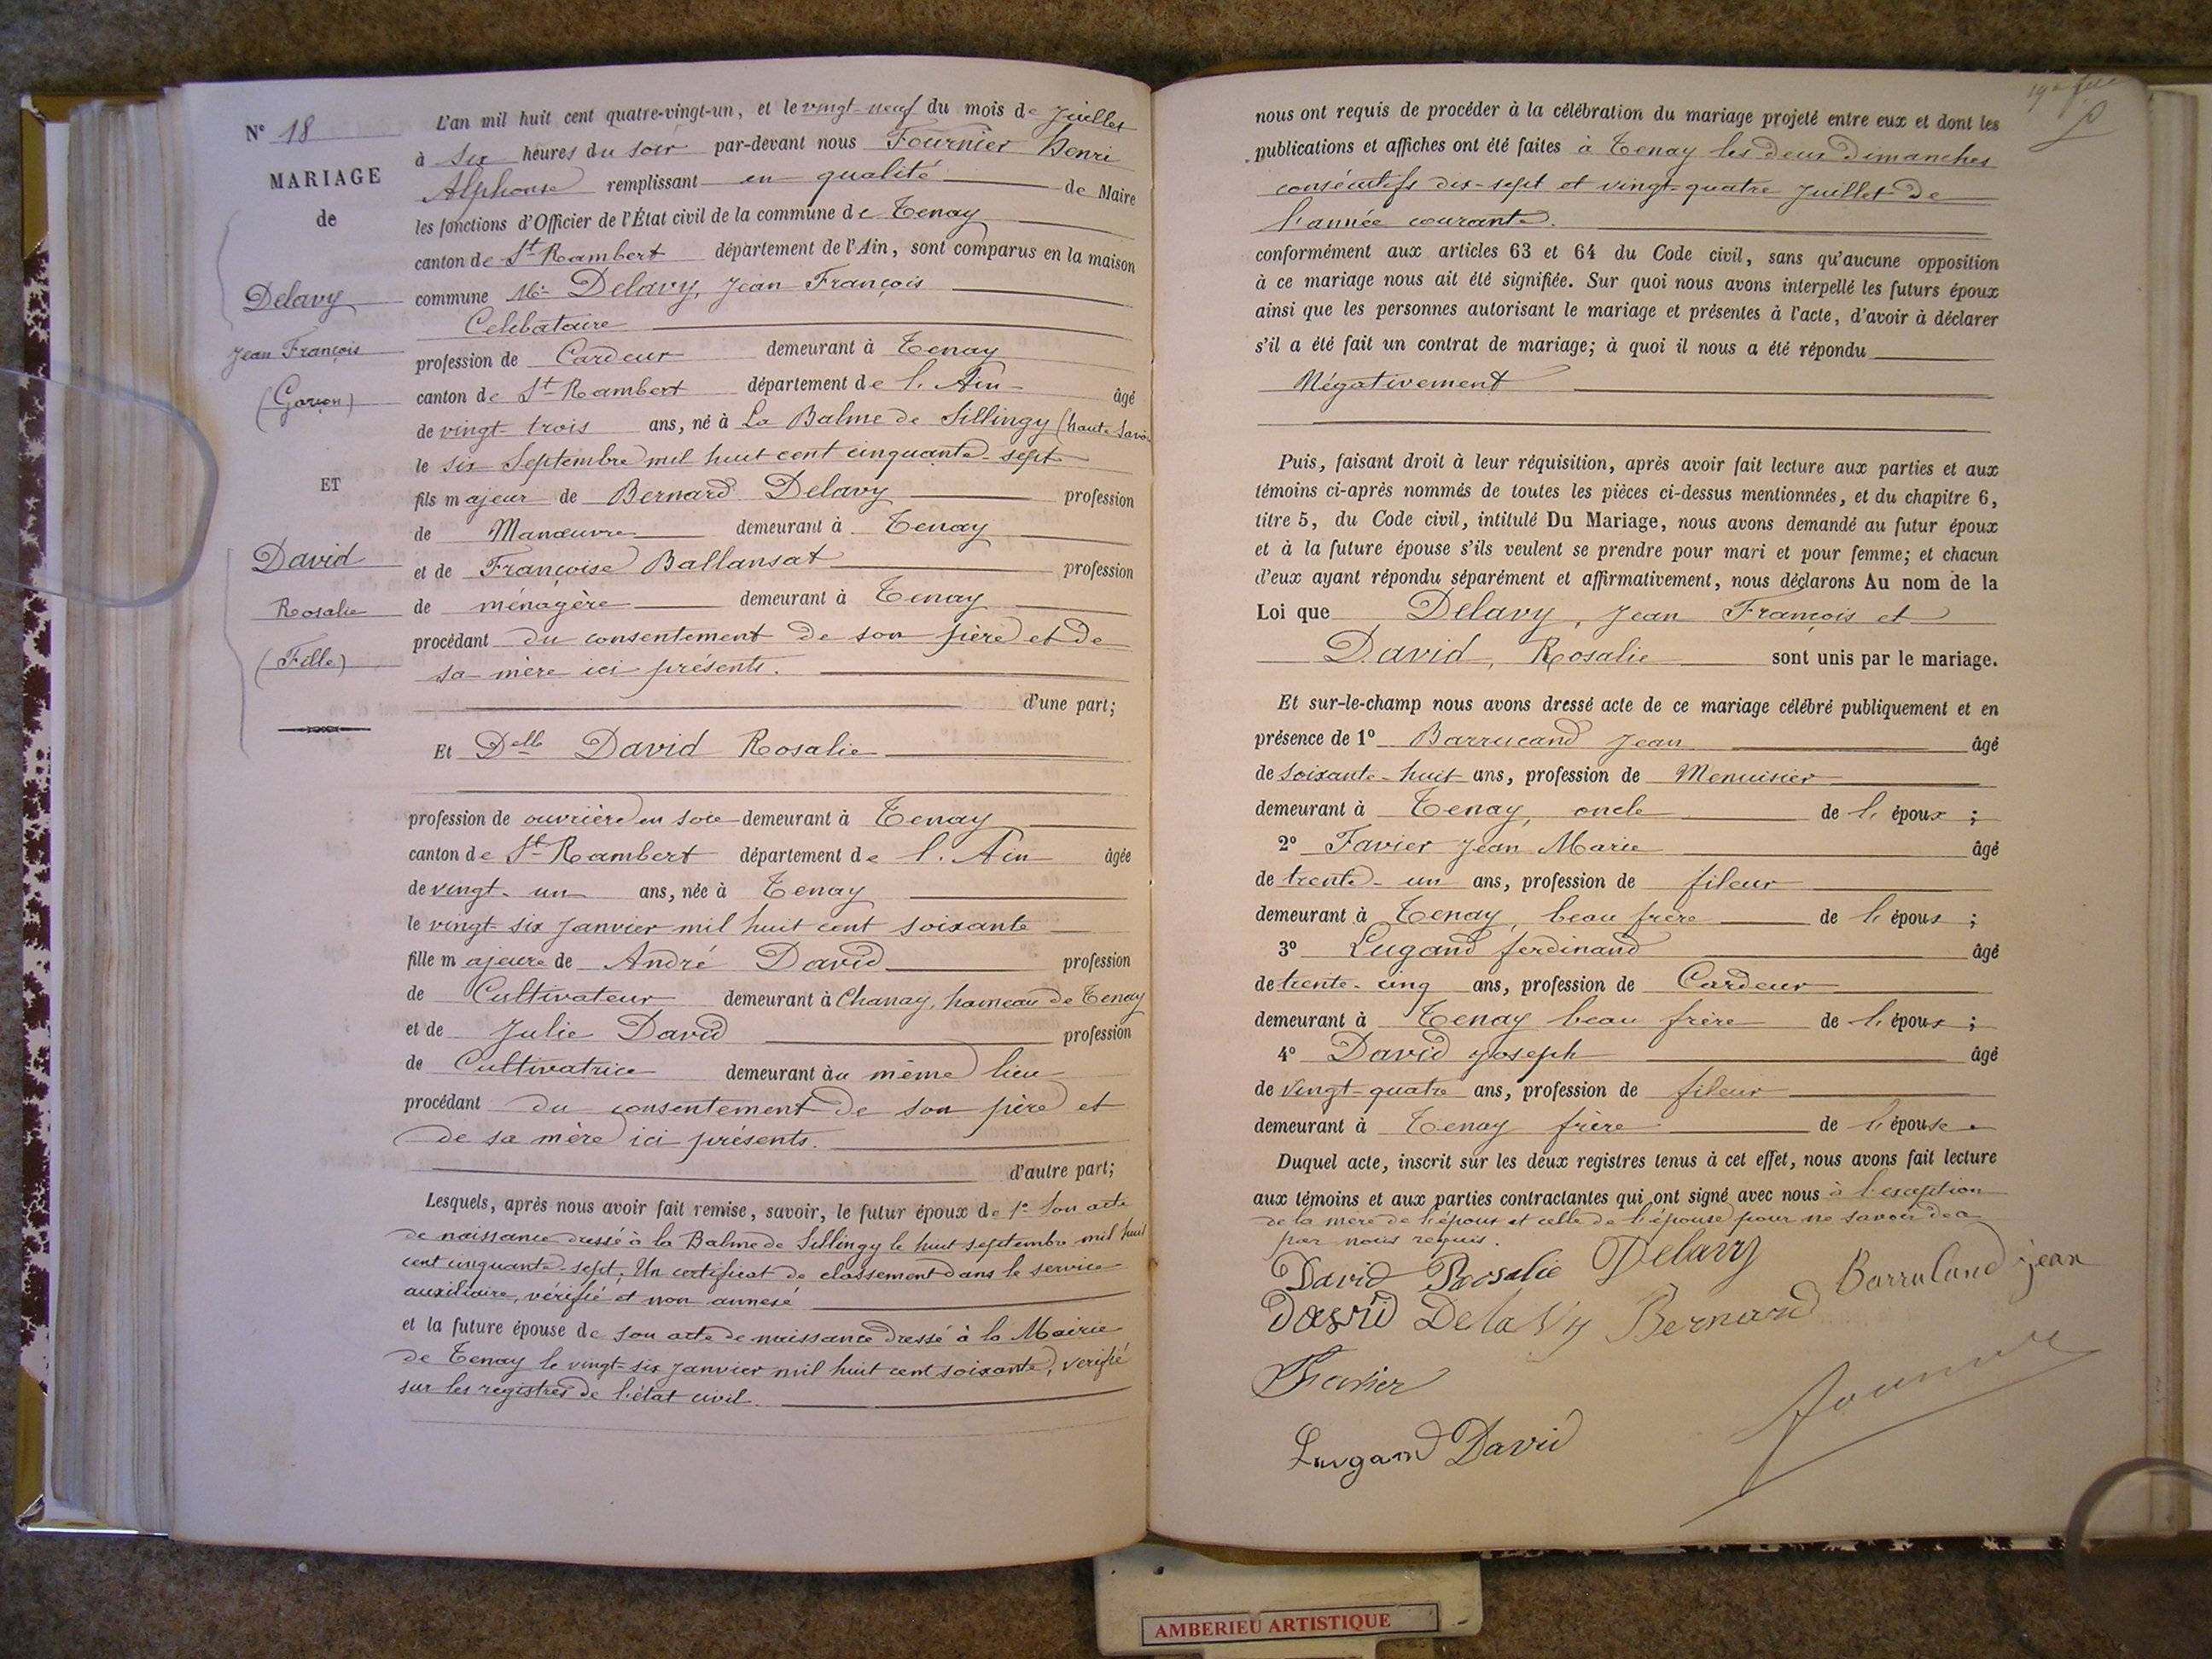 N° 18
MARIAGE
de
Delavy
Jean François
(Garçon)
ET
David
Rosalie
(Fille)
L'an mil huit cent quatre-vingt-un, et le vingt-neuf du mois de Juillet
à six heures du soir par-devant nous Fournier Henri
Alphonse remplissant en qualité de Maire
les fonctions d'Officier de l'État civil de la commune de Tenay
canton de St Rambert département de l'Ain, sont comparus en la maison
commune Mr Delavy, Jean François
Celibataire
profession de Cardeur demeurant à Tenay
canton de St Rambert département de l'Ain âgé
de vingt-trois ans, né à La Balme de Sillingy (haute Savoie
le six Septembre mil huit cent cinquante-sept
fils majeur de Bernard Delavy profession
de Manœuvre demeurant à Tenay
et de Françoise Ballansat profession
de ménagère demeurant à Tenay
procédant du consentement de son père et de
sa mère ici présents.
d'une part;
Et Delle David Rosalie
profession de ouvrière en soie demeurant à Tenay
canton de St Rambert département de l'Ain âgée
de vingt-un ans, née à Tenay
le vingt-six Janvier mil huit cent soixante
fille majeure de André David profession
de Cultivateur demeurant à Chanay, hameau de Tenay
et de Julie David profession
de Cultivatrice demeurant au même lieu
procédant du consentement de son père et
de sa mère ici présents.
d'autre part;
Lesquels, après nous avoir fait remise, savoir, le futur époux de 1° Son acte
de naissance dressé à la Balme de Sillingy le huit septembre mil huit
cent cinquante-sept; Un certificat de classement dans le service
auxiliaire, vérifié et non annexé
et la future épouse de son acte de naissance dressé à la Mairie
de Tenay le vingt-six Janvier mil huit cent soixante, vérifié
sur les registres de l'état civil.
nous ont requis de procéder à la célébration du mariage projeté entre eux et dont les
publications et affiches ont été faites à Tenay les deux Dimanches
consécutifs dix-sept et vingt-quatre Juillet de
l'année courante.
conformément aux articles 63 et 64 du Code civil, sans qu'aucune opposition
à ce mariage nous ait été signifiée. Sur quoi nous avons interpellé les futurs époux
ainsi que les personnes autorisant le mariage et présentes à l'acte, d'avoir à déclarer
s'il a été fait un contrat de mariage; à quoi il nous a été répondu
Négativement
Puis, faisant droit à leur réquisition, après avoir fait lecture aux parties et aux
témoins ci-après nommés de toutes les pièces ci-dessus mentionnées, et du chapitre 6,
titre 5, du Code civil, intitulé Du Mariage, nous avons demandé au futur époux
et à la future épouse s'ils veulent se prendre pour mari et pour femme; et chacun
d'eux ayant répondu séparément et affirmativement, nous déclarons Au nom de la
Loi que Delavy, Jean François et
David, Rosalie sont unis par le mariage.
Et sur-le-champ nous avons dressé acte de ce mariage célébré publiquement et en
présence de 1° Barrucand Jean âgé
de soixante-huit ans, profession de Menuisier
demeurant à Tenay, oncle de l'époux;
2° Favier Jean Marie âgé
de trente-un ans, profession de fileur
demeurant à Tenay, beau frère de l'époux;
3° Lugand ferdinand âgé
de trente-cinq ans, profession de Cardeur
demeurant à Tenay beau frère de l'époux;
4° David Joseph âgé
de vingt-quatre ans, profession de fileur
demeurant à Tenay frère de l'épouse
Duquel acte, inscrit sur les deux registres tenus à cet effet, nous avons fait lecture
aux témoins et aux parties contractantes qui ont signé avec nous à l'exception
de la mère de l'époux et celle de l'épouse pour ne savoir de ce
par nous requis.
David Rosalie Delavy
Barrucand jean
David Delavy Bernard
Favier
Fournier
Lugand David
AMBERIEU ARTISTIQUE